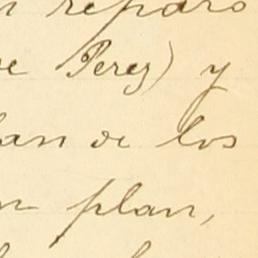 reparo
Perez) y
an de los
plan,